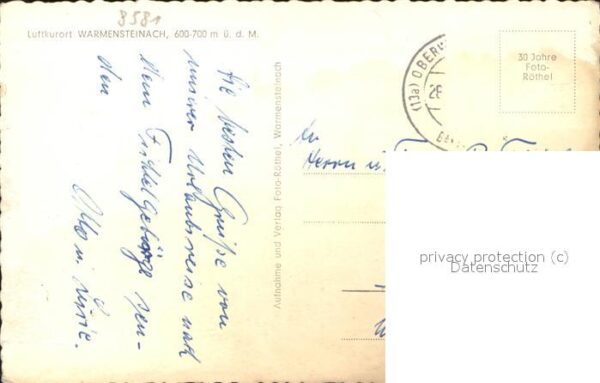 8581
Luftkurort WARMENSTEINACH, 600-700 m ü. d. M.
Die besten Grüße von
unserer Urlaubsreise nach
dem Fichtelgebirge sen-
den
Otto u.
Aufnahme und Verlag Foto-Röthel, Warmensteinach
30 Jahre
Foto-
Röthel
(13a) OBERW
26
An
Herrn u.
privacy protection (c)
Datenschutz